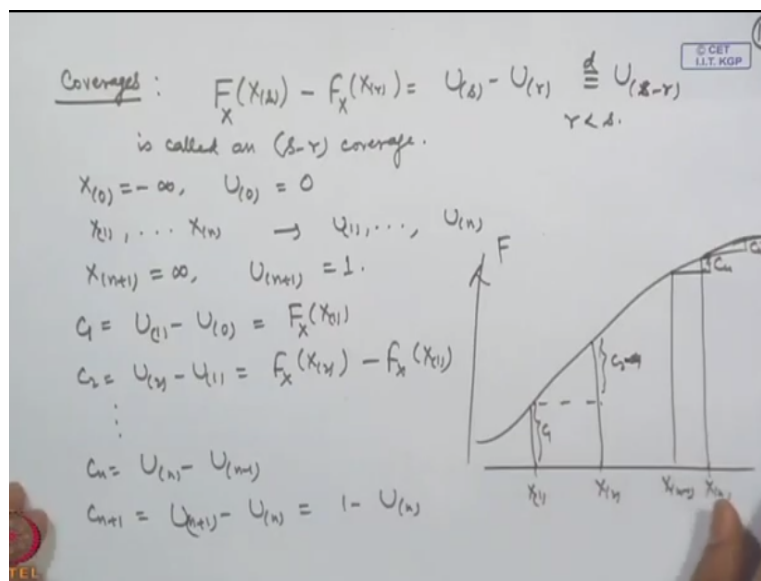 © CET
I.I.T. KGP
Coverages : F_X(X_(s)) - F_X(X_(r)) = U_(s) - U_(r) ≝ U_(s-r)
r < s.
is called an (s-r) coverage.
X_(0) = -∞, U_(0) = 0
X_(1), ... X_(n) → U_(1), ..., U_(n)
X_(n+1) = ∞, U_(n+1) = 1.
C_1 = U_(1) - U_(0) = F_X(X_(1))
C_2 = U_(2) - U_(1) = F_X(X_(2)) - F_X(X_(1))
⋮
C_n = U_(n) - U_(n-1)
C_n+1 = U_(n+1) - U_(n) = 1 - U_(n)
F
C_n
C_1
X_(1) X_(2) X_(n-1) X_(n)